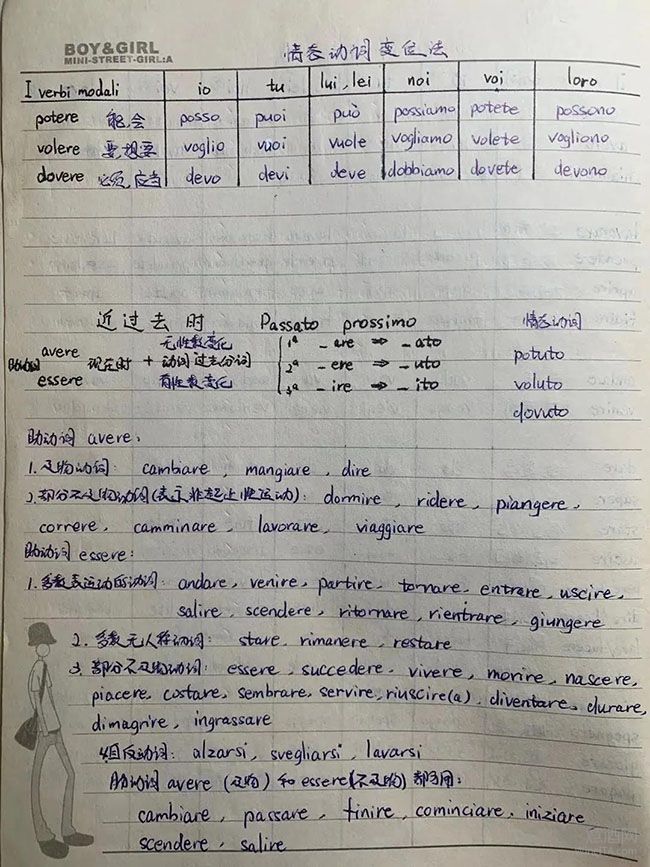 BOY&GIRL
MINI-STREET-GIRL:A
情态动词变位法
I verbi modali io tu lui, lei noi voi loro
potere 能,会 posso puoi può possiamo potete possono
volere 要,想要 voglio vuoi vuole vogliamo volete vogliono
dovere 必须,应当 devo devi deve dobbiamo dovete devono
近过去时, Passato prossimo 情态动词
无性数变化 1ª - are ⇒ - ato
avere potuto
助动词 现在时 + 动词过去分词 2ª - ere ⇒ - uto
essere 有性数变化 3ª - ire ⇒ - ito voluto
dovuto
助动词 avere:
1. 及物动词: cambiare, mangiare, dire
2. 部分不及物动词(表示非起止性运动): dormire, ridere, piangere,
correre, camminare, lavorare, viaggiare
助动词 essere:
1. 多数表运动的动词: andare, venire, partire, tornare, entrare, uscire,
salire, scendere, ritornare, rientrare, giungere
2. 多数无人称动词: stare, rimanere, restare
3. 部分不及物动词: essere, succedere, vivere, morire, nascere,
piacere, costare, sembrare, servire, riuscire(a), diventare, durare,
dimagrire, ingrassare
4. 自反动词: alzarsi, svegliarsi, lavarsi
助动词 avere (及物) 和 essere(不及物) 都可用:
cambiare, passare, finire, cominciare, iniziare
scendere, salire